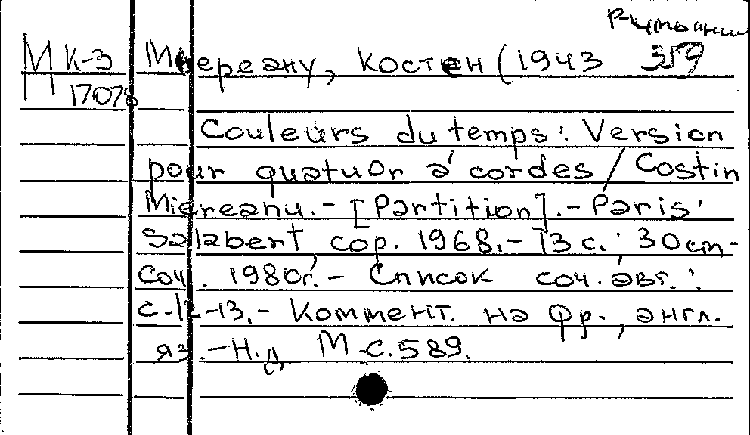 Румыния
М К-3 Миереану, Костен (1943 359
М 17078
Couleurs du temps: Version
pour quatuor à cordes / Costin
Miereanu. - [Partition]. - Paris:
Salabert, cop. 1968. - 13 с.; 30 cm -
Соч. 1980г. - Список соч. авт.:
с. 12-13. - Коммент. на фр., англ.
яз. - Н.д. М.С.589.